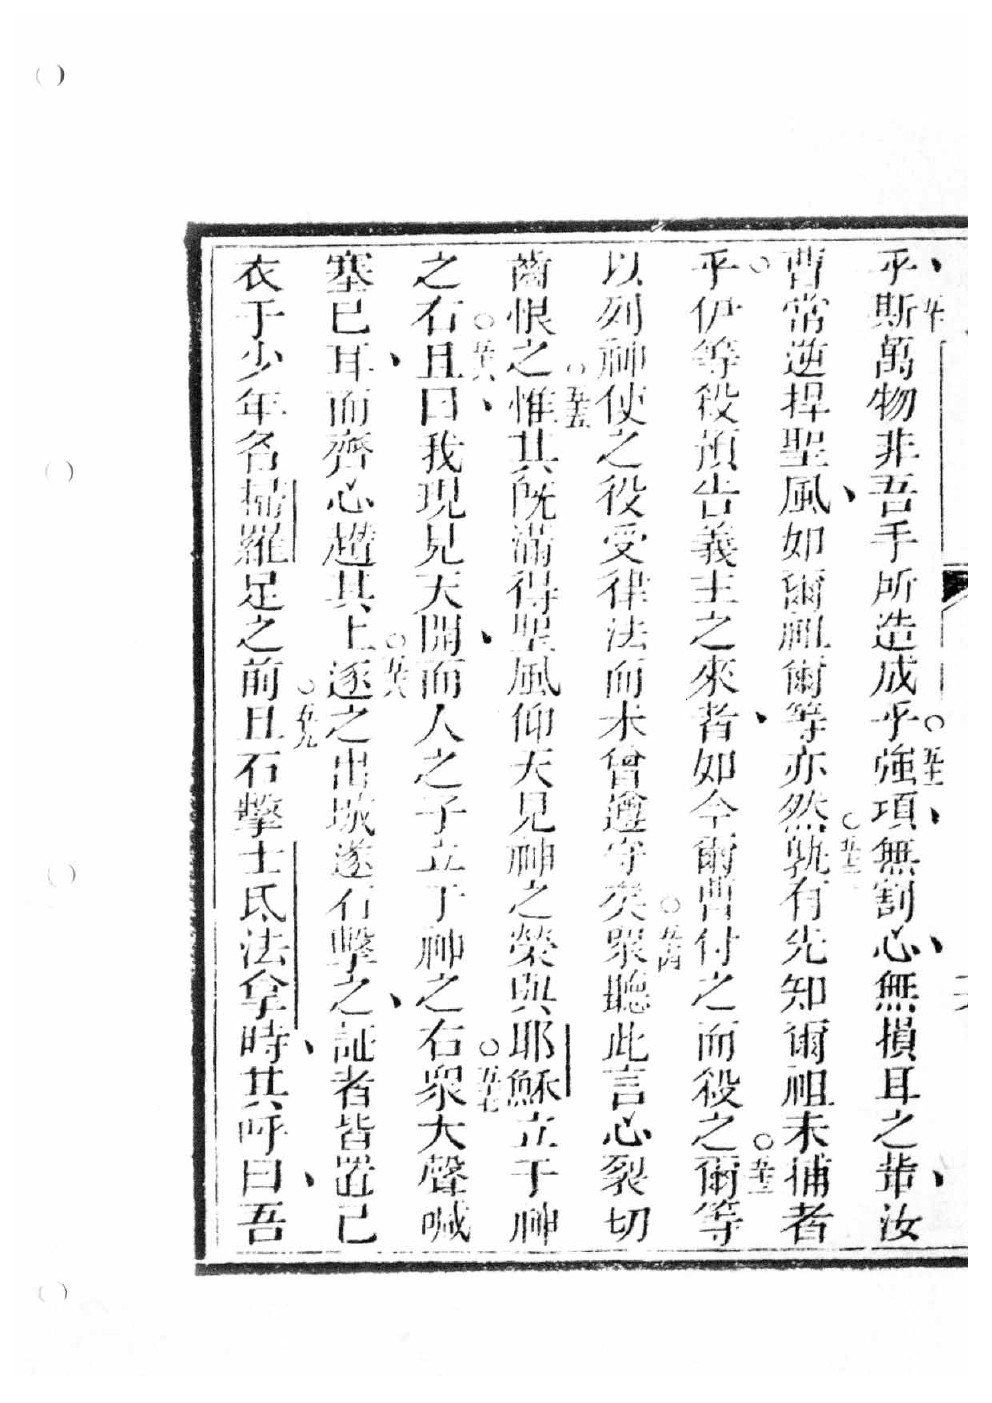 乎五十斯萬物非吾手所造成乎五十一強項無割心無損耳之輩汝
曹常逆捍聖風如爾祖爾等亦然五十二孰有先知爾祖未捕者
乎伊等殺預告義主之來者如今爾曹付之而殺之五十三爾等
以列神使之役受律法而未曾遵守矣五十四眾聽此言心裂切
齒恨之五十五惟其既滿得聖風仰天見神之榮與耶穌立于神
之右五十六且曰我現見天開而人之子立于神之右五十七眾大聲喊
塞已耳而齊心趲其上五十八逐之出城遂石擊之証者皆置己
衣于少年名掃羅足之前五十九且石擊士氐法拿時其呼曰吾